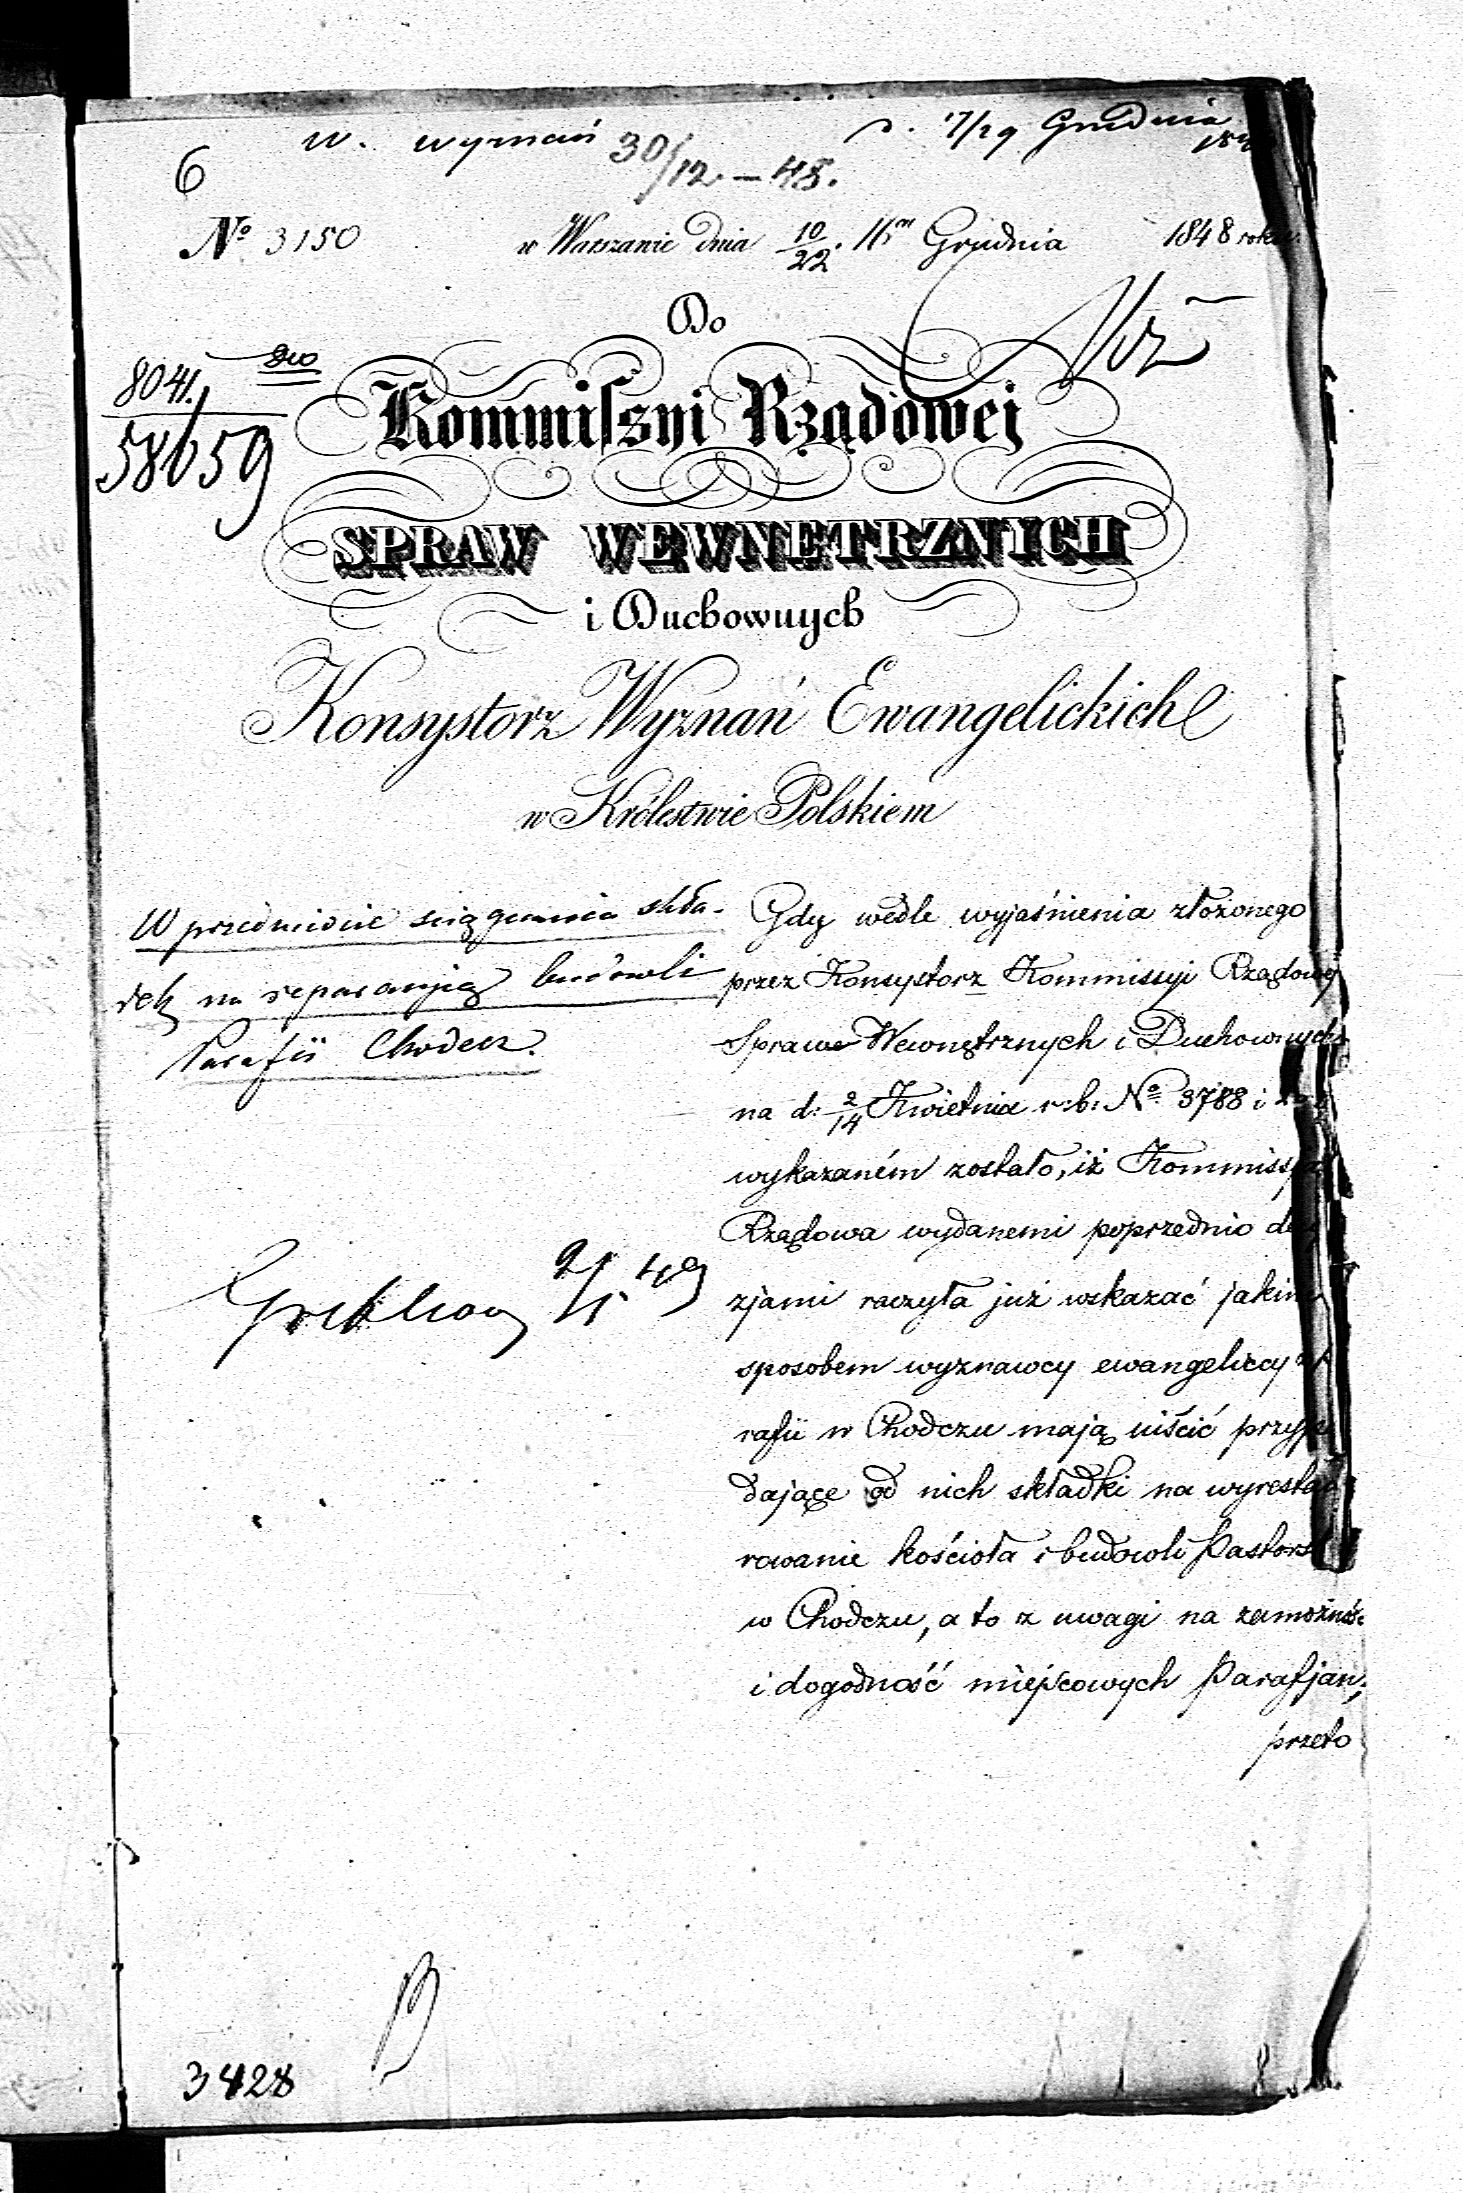 6
w. wyznań
30/12 - 48.
17/29 Grudnia
No 3150
w Warszawie dnia 10/22. Grudnia 1848 roku
Do
8041.
58659
Kommissyi Rządowej
SPRAW WEWNĘTRZNYCH
i Duchownych
Konsystorz Wyznań Ewangelickich
w Królestwie Polskiem
W przedmiocie ściągania skła-
dek na reparacyją budowli
Parafii Chodecz.
Gdy wedle wyjaśnienia złożonego
przez Konsystorz Kommissyi Rządowej
Spraw Wewnętrznych i Duchownych
na d: 2/14 Kwietnia r: b: No 3788 i
wykazaném zostało, iż Kommissya
Rządowa wydanemi poprzednio
zjami raczyła już wskazać jakim
sposobem wyznawcy ewangeliccy
rafii w Chodczu mają uiścić przypa
dające od nich składki na wyrestau
rowanie kościoła i budowli Pastorsk
w Chodczu, a to z uwagi na zamożność
i dogodność miejscowych Parafjan;
przeto
3428